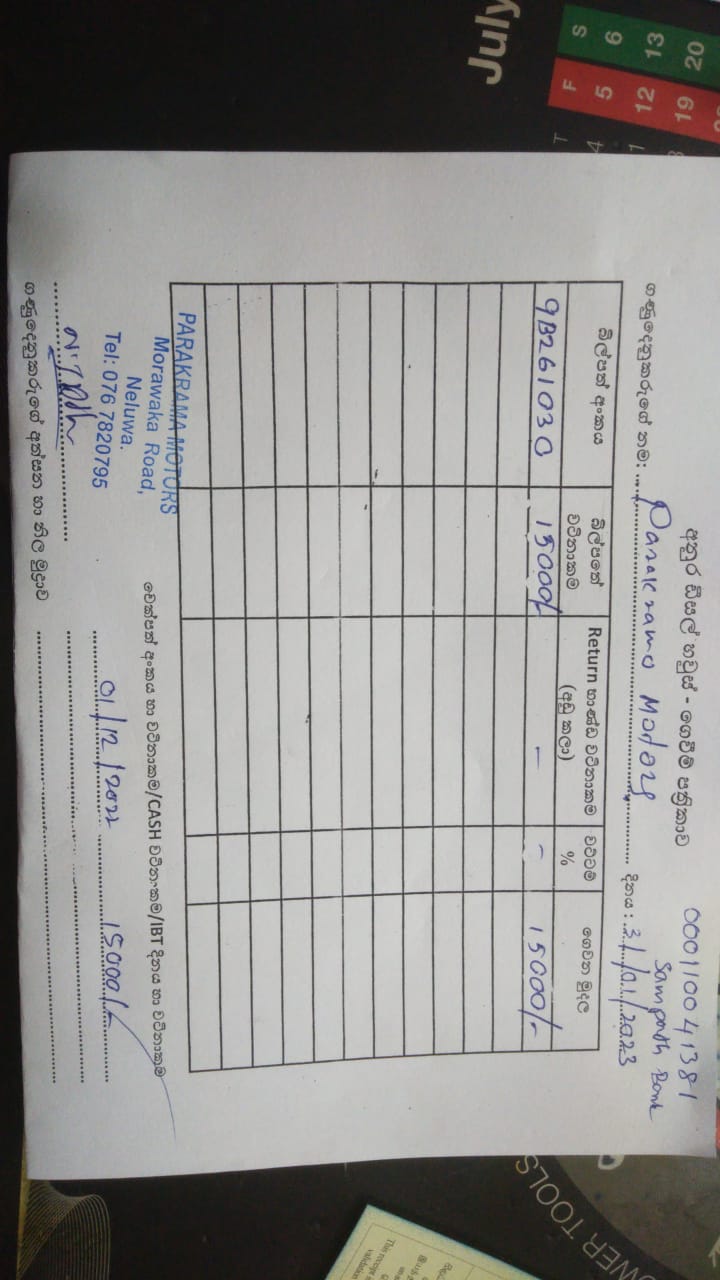 July
S 6 13 20
F 5 12 19
T 4
අනුර ඩීසල් හවුස් - ගෙවීම් පත්‍රිකාව
000110041381
Sampath Bank
ගණුදෙනුකරුගේ නම: Parakrama Motors දිනය: 31/01/2023
බිල්පත් අංකය බිල්පතේ වටිනාකම Return භාණ්ඩ වටිනාකම (අඩු කලා) වට්ටම් % ගෙවන මුදල
9B261030 15000/- - - 15000/-
PARAKRAMA MOTORS
Morawaka Road,
Neluwa.
Tel: 076 7820795
චෙක්පත් අංකය හා වටිනාකම/CASH වටිනාකම/IBT දිනය හා වටිනාකම
01/12/2022 15000/-
ගණුදෙනුකරුගේ අත්සන හා නිල මුද්‍රාව
OWER TOOLS
This receipt
validation